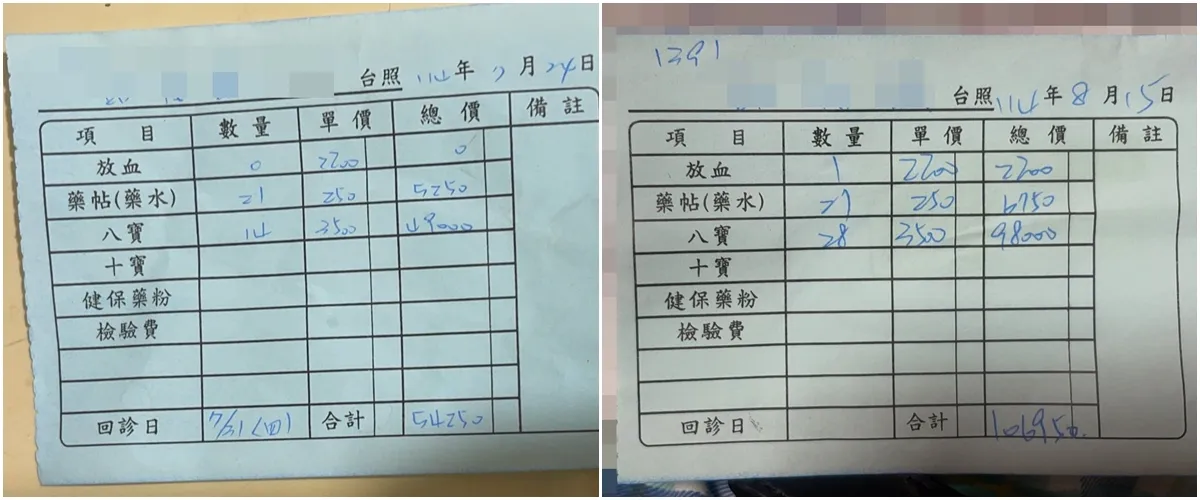 台照 114 年 7 月 24 日
項目 數量 單價 總價 備註
放血 0 2200 0
藥帖(藥水) 21 250 5250
八寶 14 3500 49000
十寶
健保藥粉
檢驗費
回診日 7/31(四) 合計 54250
1391
台照 114 年 8 月 15 日
項目 數量 單價 總價 備註
放血 1 2200 2200
藥帖(藥水) 27 250 6750
八寶 28 3500 98000
十寶
健保藥粉
檢驗費
回診日 合計 106950.